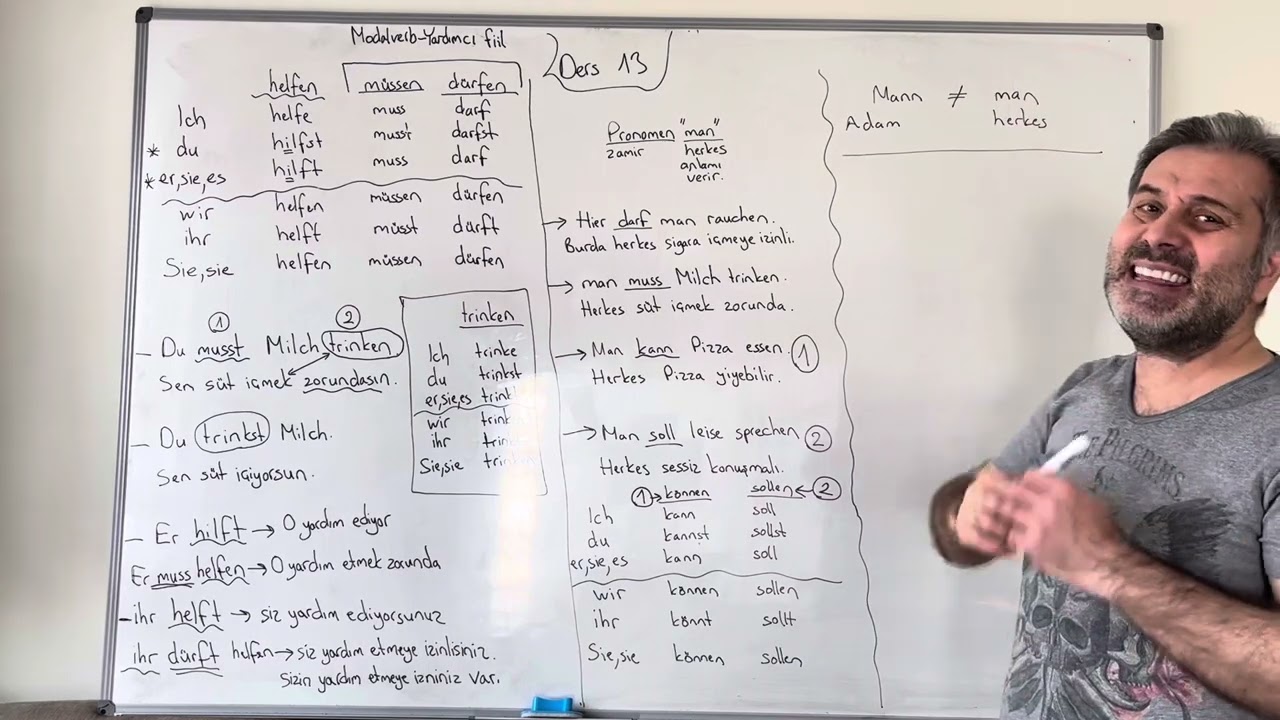 Modalverb-Yardımcı fiil
helfen müssen dürfen
Ich helfe muss darf
* du hilfst musst darfst
* er,sie,es hilft muss darf
wir helfen müssen dürfen
ihr helft müsst dürft
Sie,sie helfen müssen dürfen
① ②
- Du musst Milch trinken
Sen süt içmek zorundasın.
- Du trinkst Milch.
Sen süt içiyorsun.
trinken
Ich trinke
du trinkst
er,sie,es
wir
ihr
Sie,sie
- Er hilft → O yardım ediyor
Er muss helfen → O yardım etmek zorunda
- ihr helft → siz yardım ediyorsunuz
ihr dürft helfen → siz yardım etmeye izinlisiniz.
Sizin yardım etmeye izniniz var.
Ders 13
Pronomen "man"
zamir herkes
anlamı
verir.
→ Hier darf man rauchen.
Burda herkes sigara içmeye izinli.
→ man muss Milch trinken.
Herkes süt içmek zorunda.
→ Man kann Pizza essen. ①
Herkes Pizza yiyebilir.
→ Man soll leise sprechen ②
Herkes sessiz konuşmalı.
① → können sollen ← ②
Ich kann soll
du kannst sollst
er,sie,es kann soll
wir können sollen
ihr könnt sollt
Sie,sie können sollen
Mann ≠ man
Adam herkes
PILGRIMS